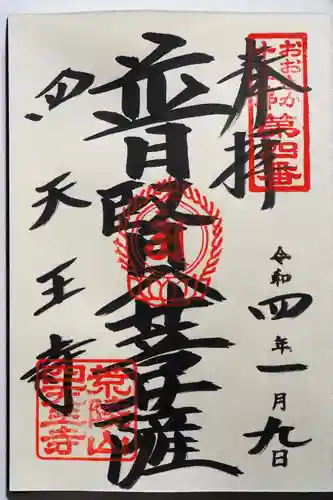 奉拝
おおさか
十三佛
第四番
令和四年一月九日
普賢菩薩
四天王寺
荒陵山
四天王寺